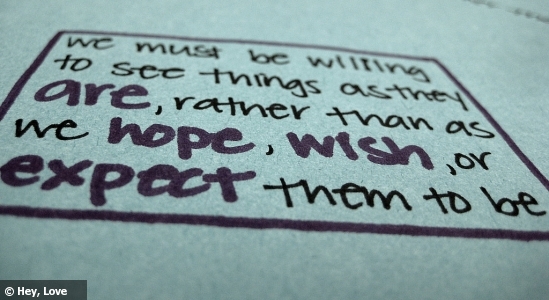 we must be willing
to see things as they
are, rather than as
we hope, wish, or
expect them to be
© Hey, Love